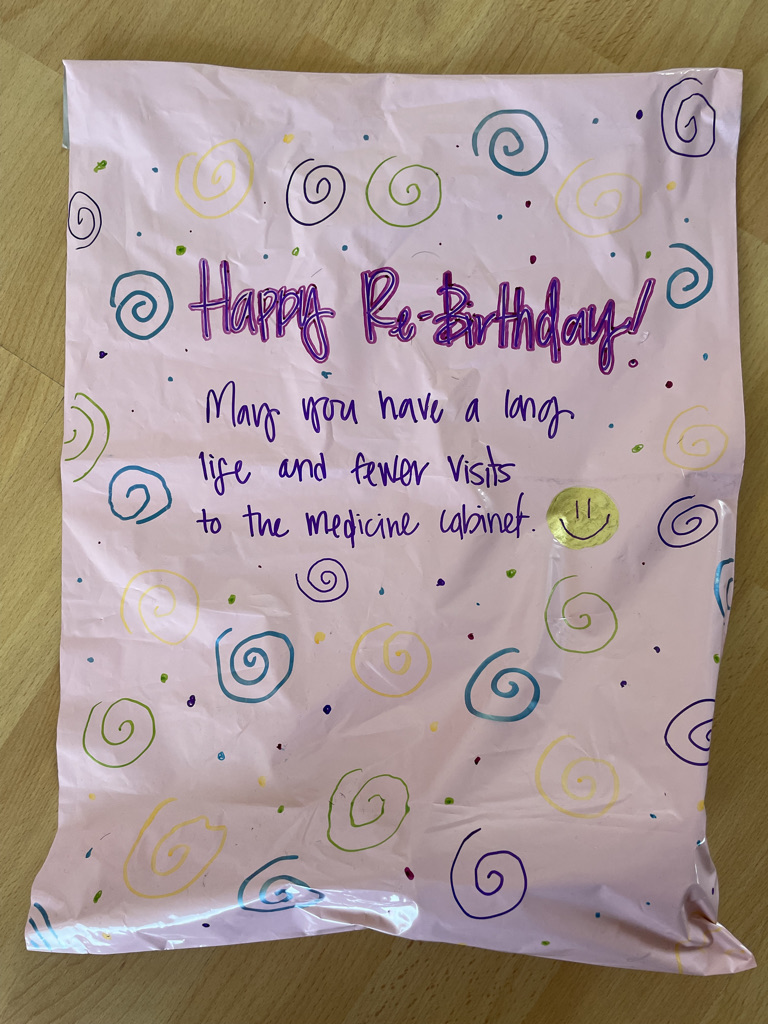 Happy Re-Birthday!
May you have a long
life and fewer visits
to the medicine cabinet.